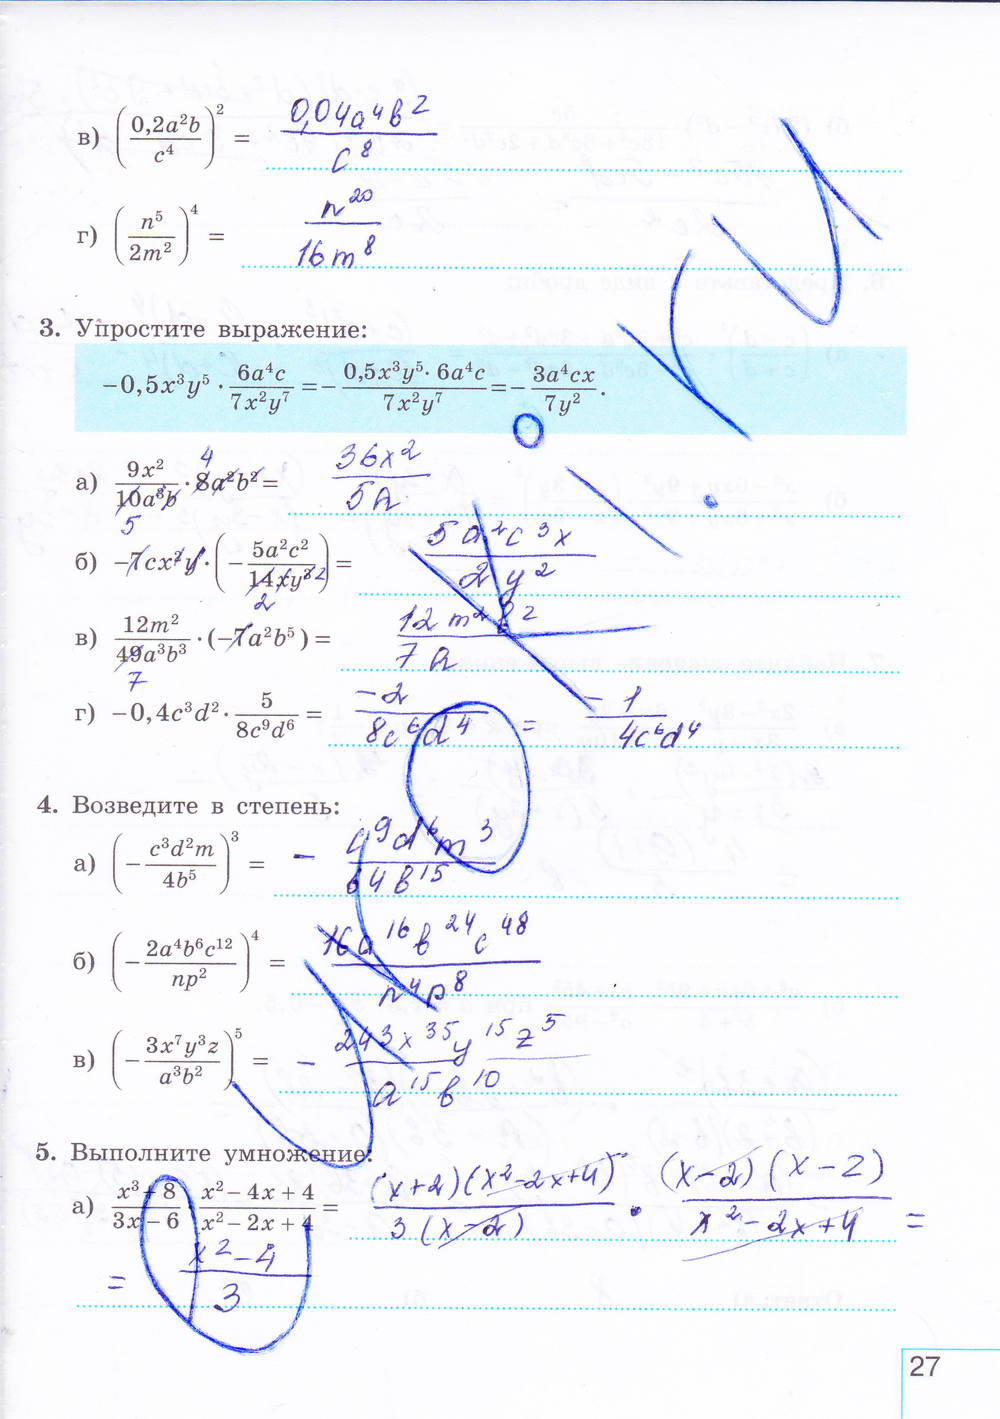 в) (0,2a²b / c⁴)² = 0,04a⁴b² / c⁸
г) (n⁵ / 2m²)⁴ = n²⁰ / 16m⁸
3. Упростите выражение:
−0,5x³y⁵ · 6a⁴c / 7x²y⁷ = − 0,5x³y⁵ · 6a⁴c / 7x²y⁷ = − 3a⁴cx / 7y².
а) 9x² / 10a³b · 8a²b² = 36x² / 5a
4
5
б) −7cx²y · (− 5a²c² / 14xy³) = 5a²c³x / 2y²
2
2
в) 12m² / 49a³b³ · (−7a²b⁵) = 12m²b² / 7a
7
г) −0,4c³d² · 5 / 8c⁹d⁶ = −2 / 8c⁶d⁴ = − 1 / 4c⁶d⁴
4. Возведите в степень:
а) (− c³d²m / 4b⁵)³ = − c⁹d⁶m³ / 64b¹⁵
б) (− 2a⁴b⁶c¹² / np²)⁴ = 16a¹⁶b²⁴c⁴⁸ / n⁴p⁸
в) (− 3x⁷y³z / a³b²)⁵ = − 243x³⁵y¹⁵z⁵ / a¹⁵b¹⁰
5. Выполните умножение:
а) x³ + 8 / 3x − 6 · x² − 4x + 4 / x² − 2x + 4 = (x+2)(x²−2x+4) / 3(x−2) · (x−2)(x−2) / x²−2x+4 =
= x²−4 / 3
27